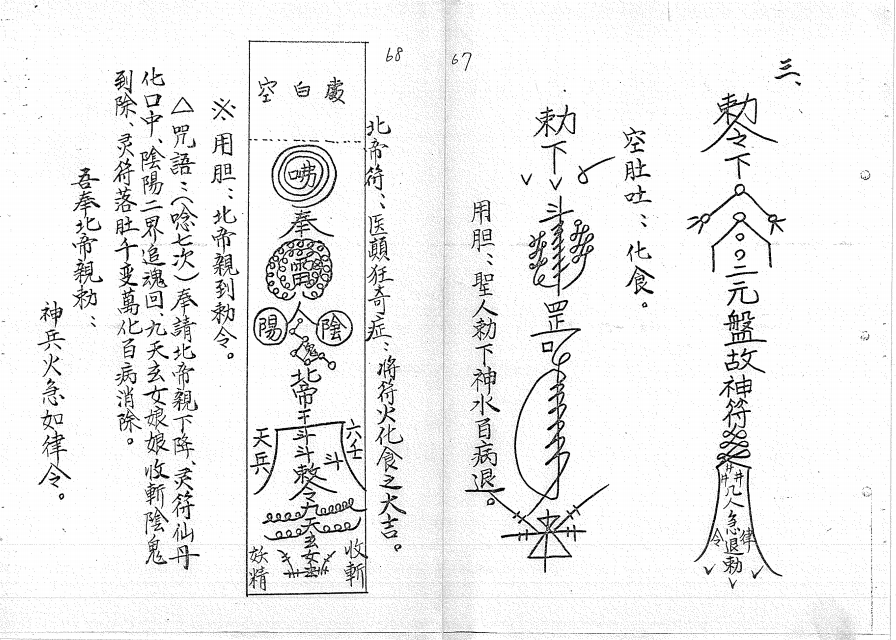 67
三、
勅令下
三元盤故神符
凡人急退勅
律令
空肚吐：化食。
勅下
斗
罡
用胆：聖人勅下神水百病退。
68
北帝符：医頭狂奇症：将符火化食之大吉。
空白處
咈
奉
雷
人
陽
陰
魂
北帝
斗斗勅令九天玄女
六壬
斗
天兵
收斬
妖精
※用胆：北帝親到勅令。
△咒語：（唸七次）奉請北帝親下降、灵符仙丹
化口中、陰陽二界追魂回、九天玄女娘娘收斬陰鬼
到除、灵符落肚千変萬化百病消除。
吾奉北帝親勅：
神兵火急如律令。